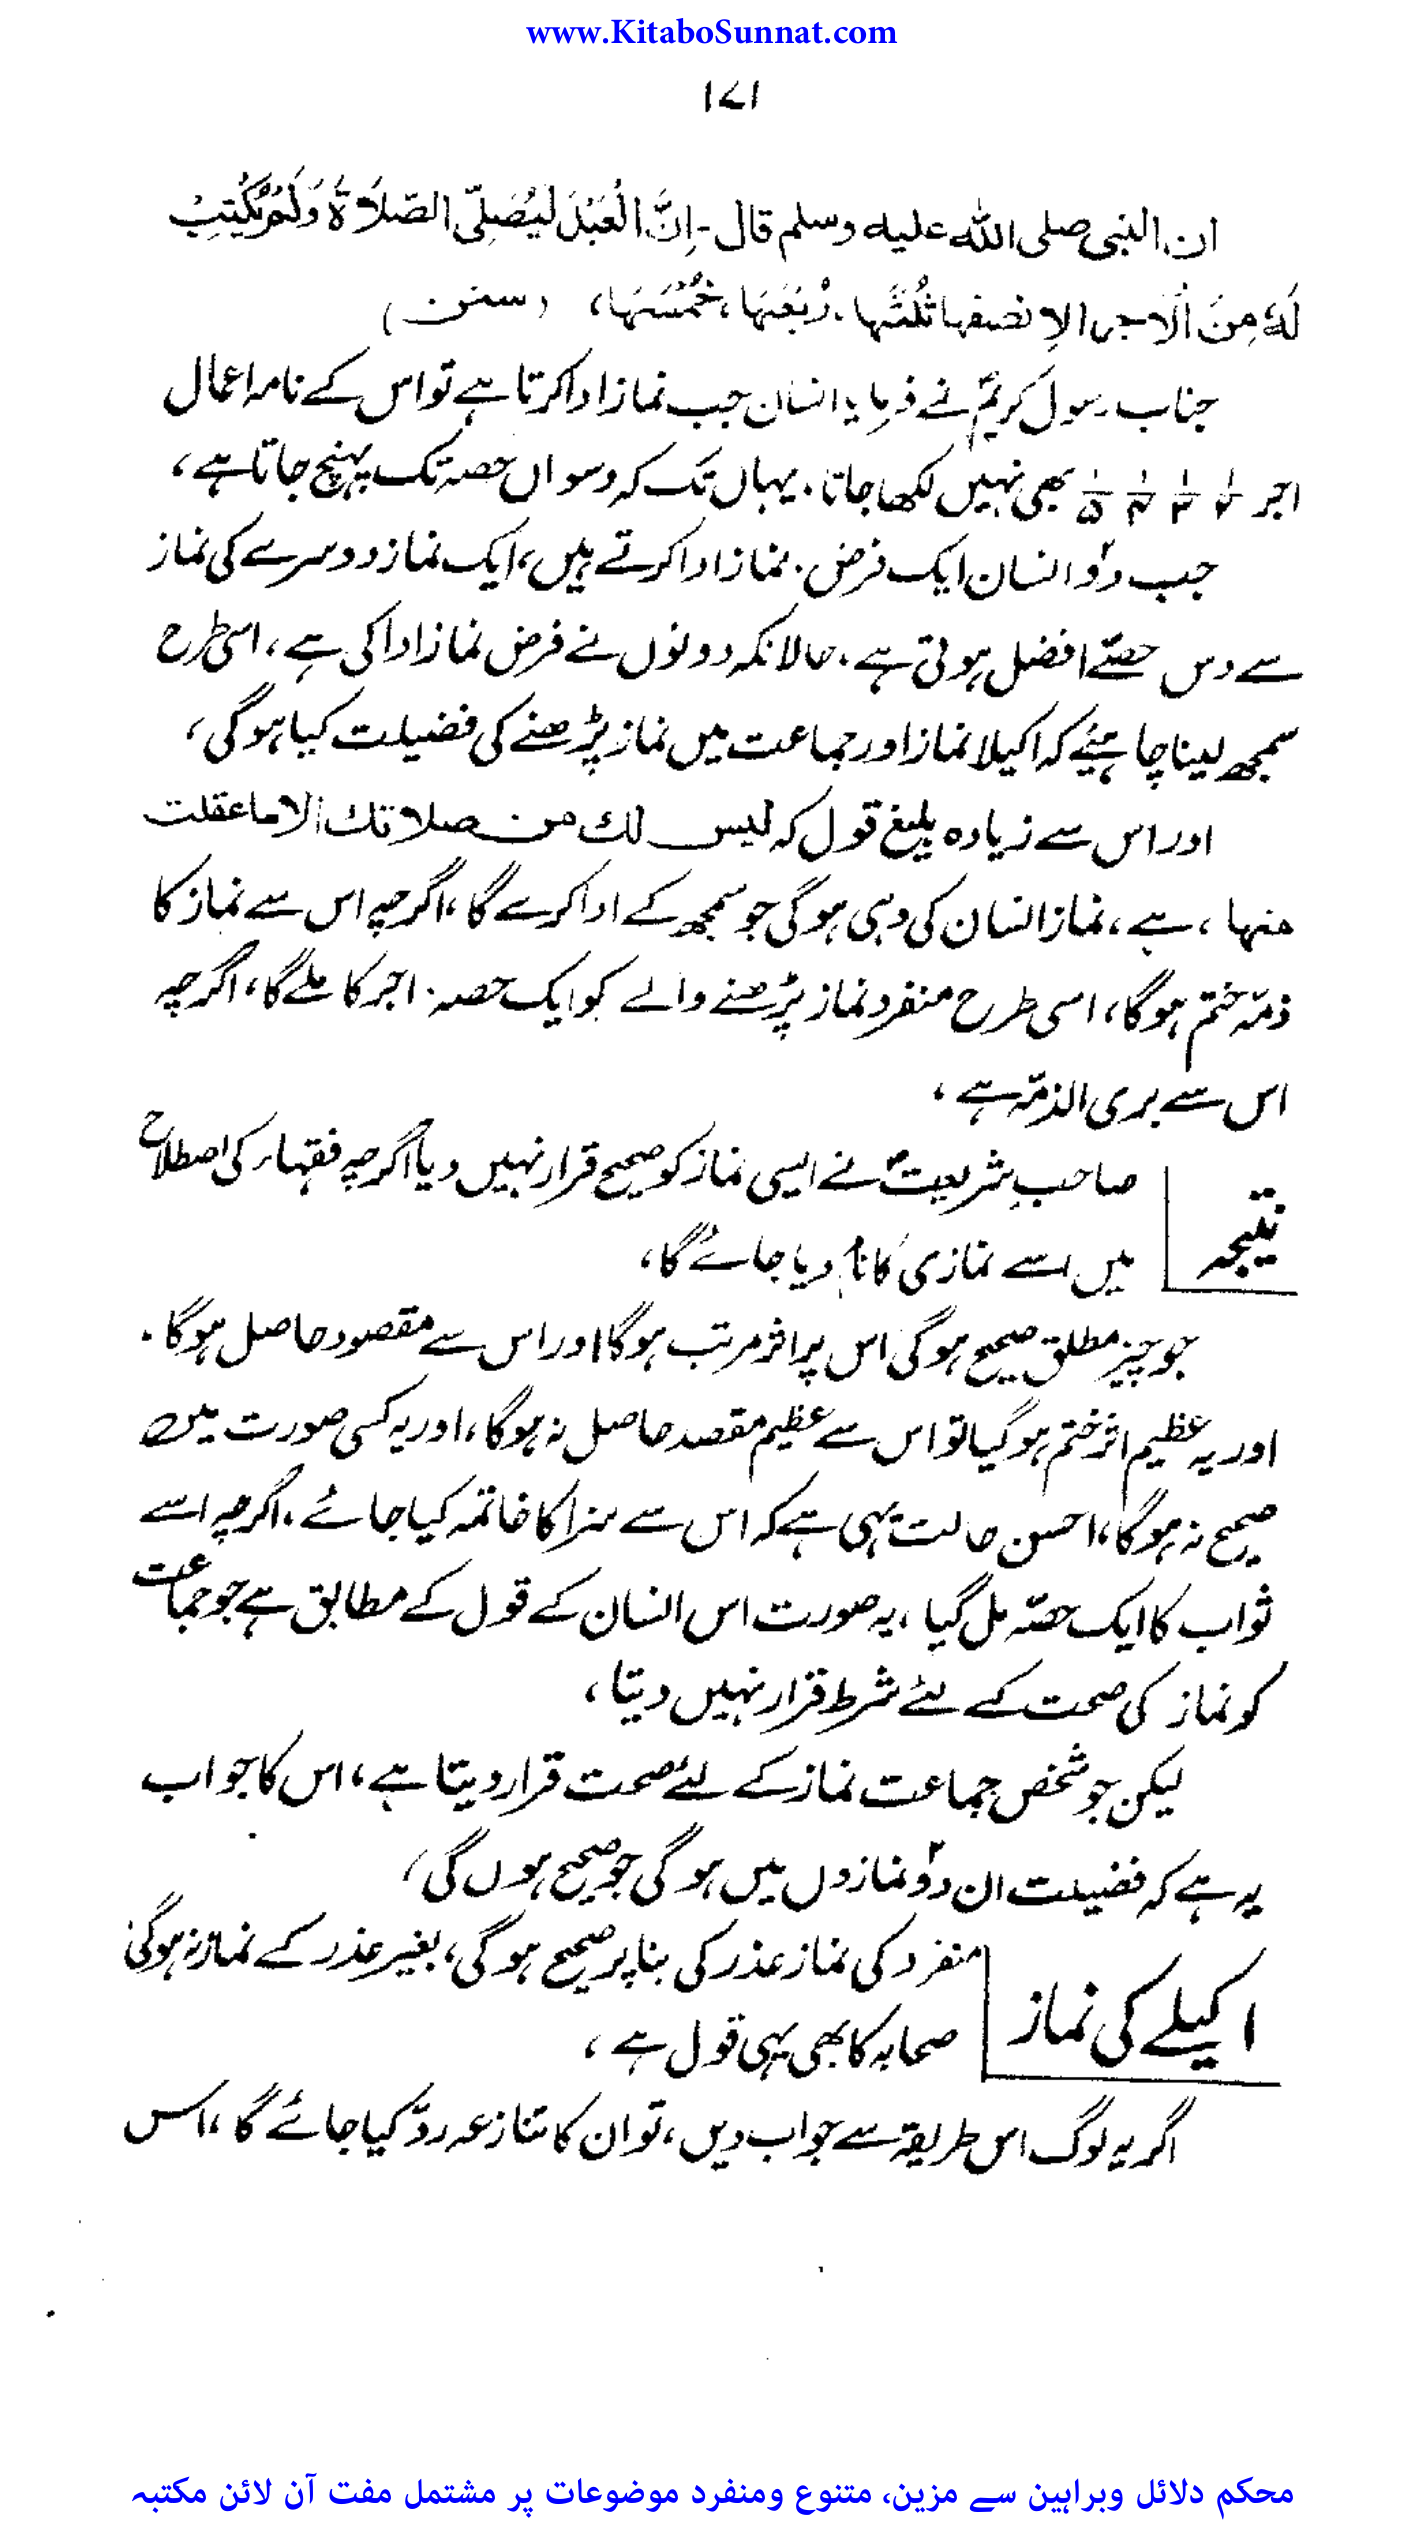 www.KitaboSunnat.com
۱۷۱
ان النبی صلی اللہ علیہ وسلم قال - اِنَّ الْعَبْدَ لَیُصَلِّی الصَّلَاۃَ وَلَمْ یُکْتَبْ
لَہٗ مِنَ الْاَجر الا نصفہا ثُلُثُہا ۔ رُبُعَہَا ، خُمُسَہَا ، (سنن)
جناب رسول کریمؐ نے فرمایا انسان جب نماز ادا کرتا ہے تو اس کے نامہ اعمال
اجر ۱/۲ ۱/۳ ۱/۴ ۱/۵ بھی نہیں لکھا جاتا ۔ یہاں تک کہ دسواں حصہ تک پہنچ جاتا ہے ،
جب دوؔ انسان ایک فرض ۔ نماز ادا کرتے ہیں ، ایک نماز دوسرے کی نماز
سے دس حصّے افضل ہوتی ہے ۔ حالانکہ دونوں نے فرض نماز ادا کی ہے ، اسی طرح
سمجھ لینا چاہیئے کہ اکیلا نماز اور جماعت میں نماز پڑھنے کی فضیلت کیا ہوگی ،
اور اس سے زیادہ بلیغ قول کہ لیس لک من صلاتک الا ما عقلت
منہا ، ہے ، نماز انسان کی وہی ہوگی جو سمجھ کے ادا کرے گا ، اگرچہ اس سے نماز کا
ذمّہ ختم ہوگا ، اسی طرح منفرد نماز پڑھنے والے کو ایک حصہ ۔ اجر کا ملے گا ، اگرچہ
اس سے بری الذمّہ ہے ،
نتیجہ
صاحبِ شریعتؐ نے ایسی نماز کو صحیح قرار نہیں دیا اگرچہ فقہاء کی اصطلاح
میں اسے نمازی کا نام دیا جائے گا ،
جو چیز مطلق صحیح ہوگی اس پر اثر مرتب ہوگا اور اس سے مقصود حاصل ہوگا ۔
اور یہ عظیم اثر ختم ہوگیا تو اس سے عظیم مقصد حاصل نہ ہوگا ، اور یہ کسی صورت میں
صحیح نہ ہوگا ، احسن حالت یہی ہے کہ اس سے سزا کا خاتمہ کیا جائے ۔ اگرچہ اسے
ثواب کا ایک حصّہ مل گیا ، یہ صورت اس انسان کے قول کے مطابق ہے جو جماعت
کو نماز کی صحت کے لئے شرط قرار نہیں دیتا ،
لیکن جو شخص جماعت نماز کے لئے صحت قرار دیتا ہے ، اس کا جواب
یہ ہے کہ فضیلت ان دوؔ نمازوں میں ہوگی جو صحیح ہوں گی ،
اکیلے کی نماز
منفرد کی نماز عذر کی بنا پر صحیح ہوگی ، بغیر عذر کے نماز نہ ہوگی
صحابہ کا بھی یہی قول ہے ،
اگر یہ لوگ اس طریقہ سے جواب دیں ، تو ان کا تنازعہ ردّ کیا جائے گا ، اس
محکم دلائل وبراہین سے مزین، متنوع ومنفرد موضوعات پر مشتمل مفت آن لائن مکتبہ